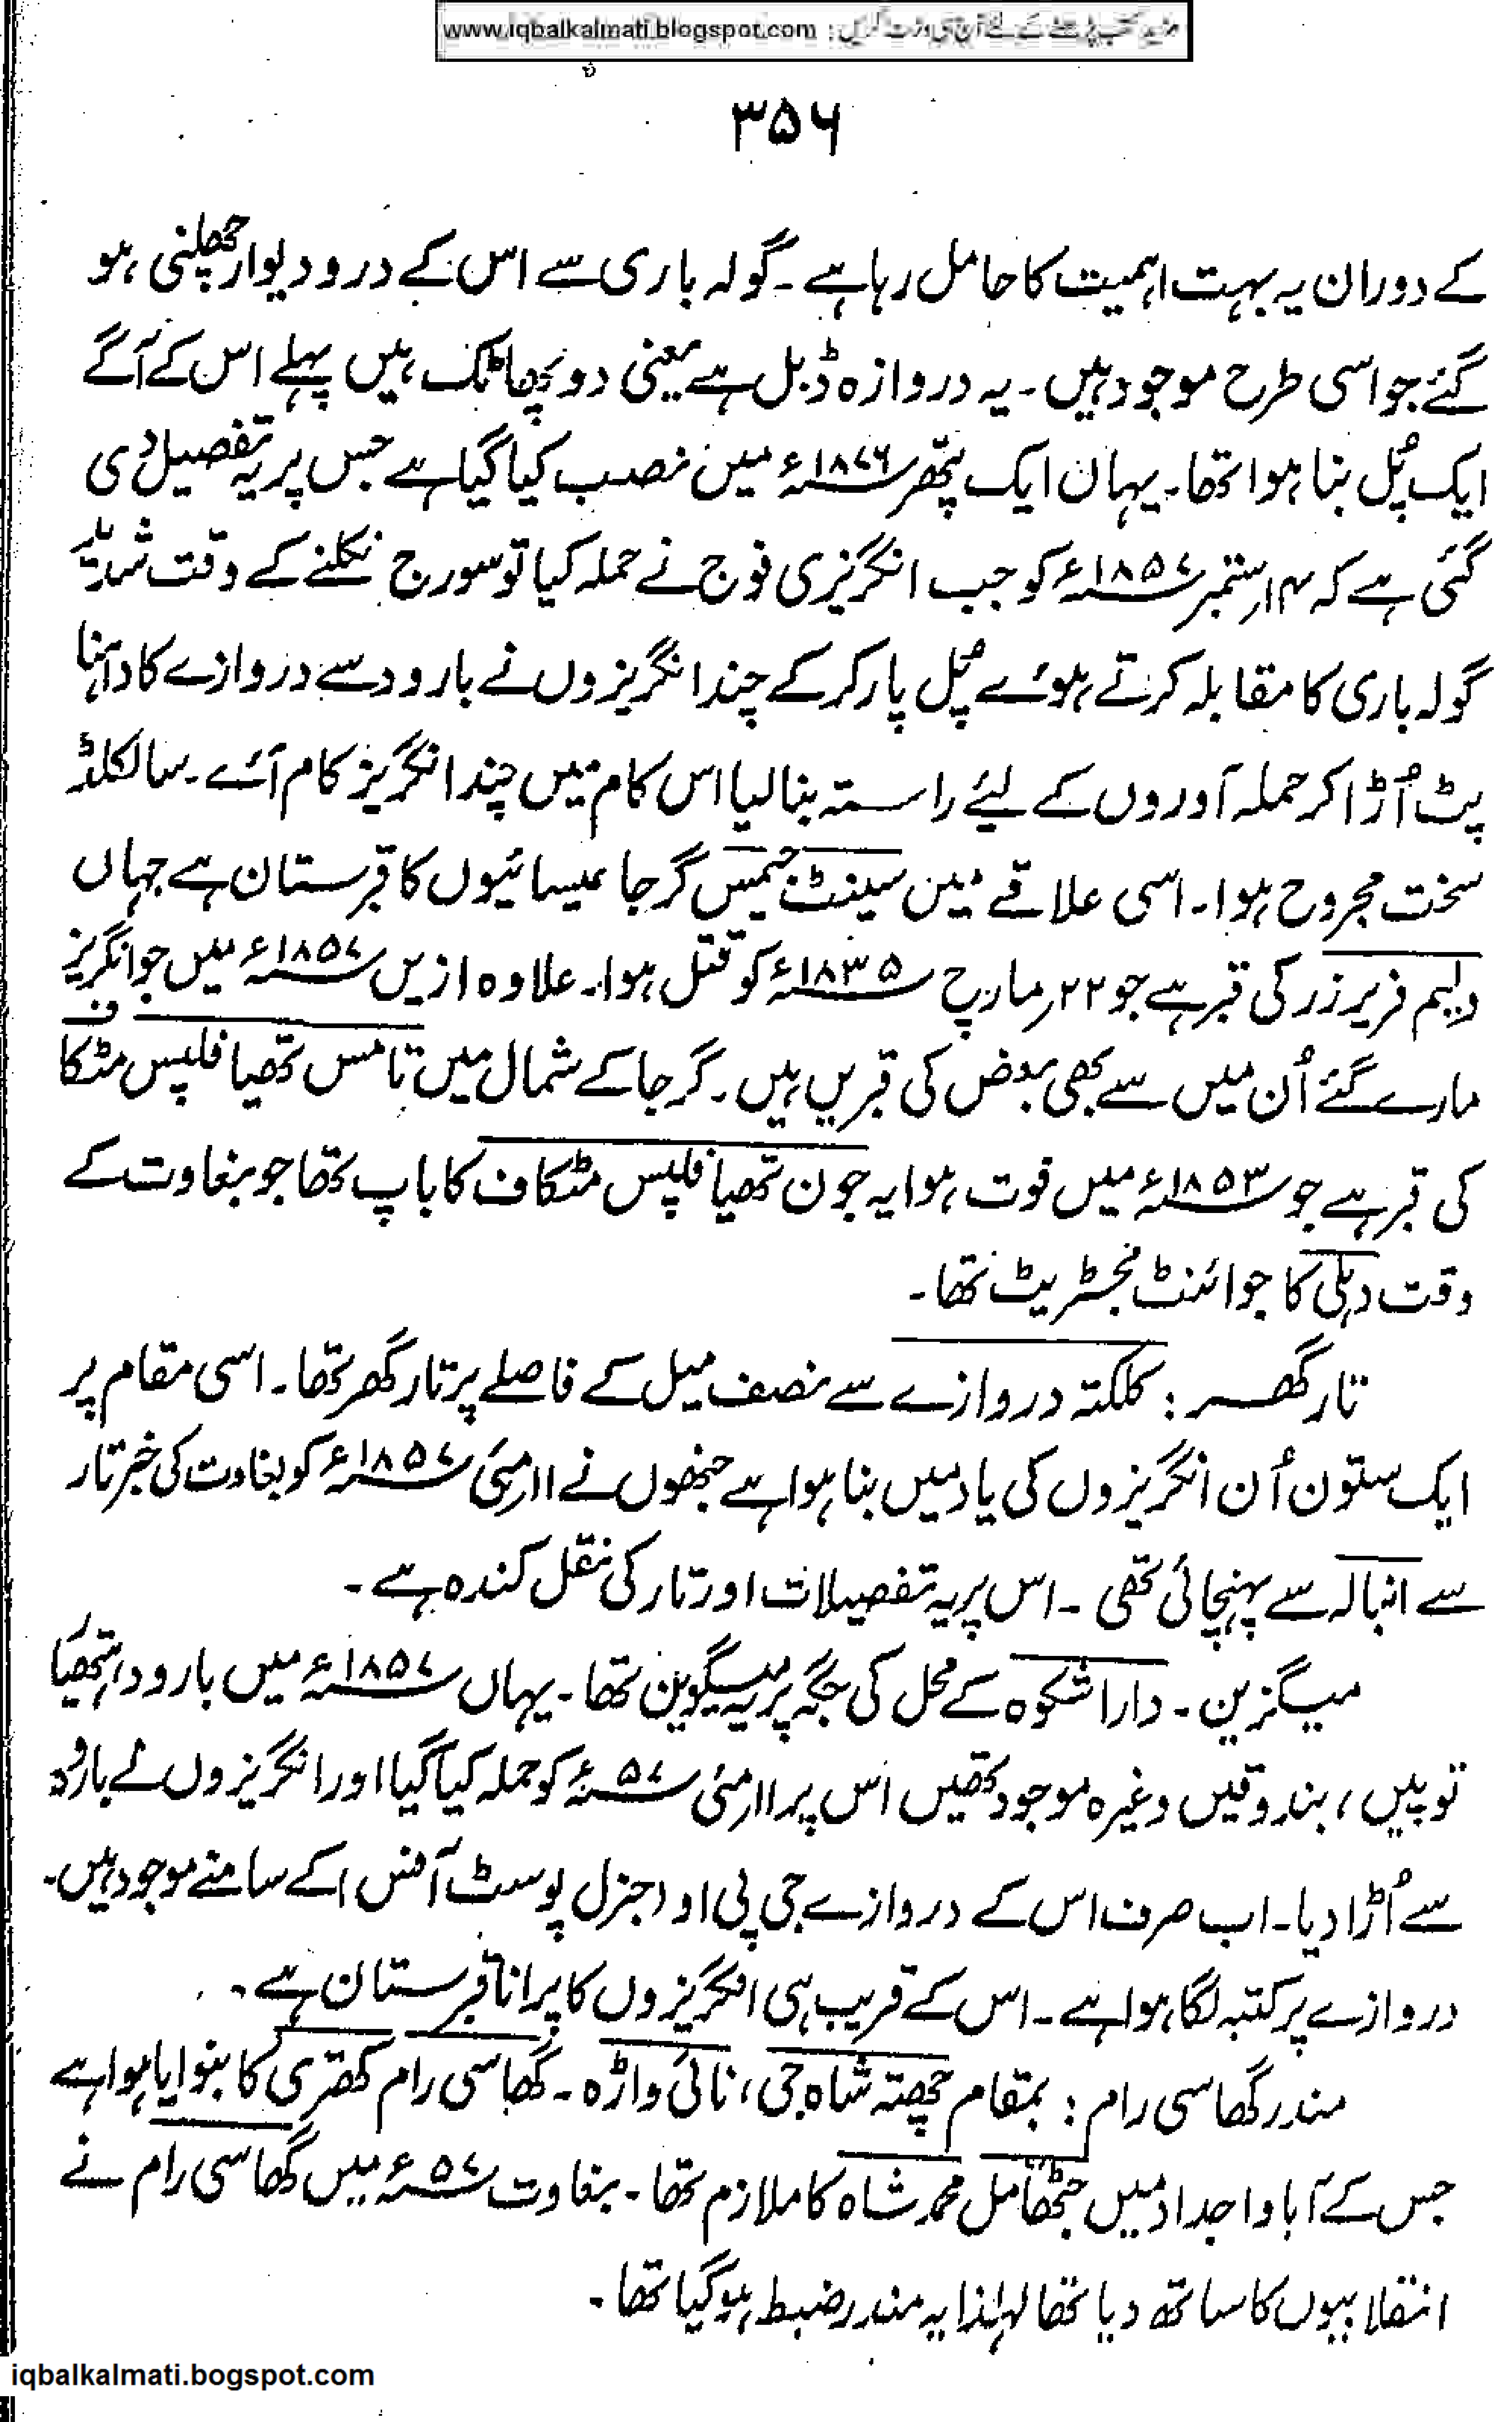 www.iqbalkalmati.blogspot.com : مزید کتب پڑھنے کے لئے آج ہی وزٹ کریں
۳۵۶
کے دوران یہ بہت اہمیت کا حامل رہا ہے ۔ گولہ باری سے اس کے در و دیوار چھلنی ہو
گئے جو اسی طرح موجود ہیں ۔ یہ دروازہ ڈبل ہے یعنی دو پھاٹک ہیں پہلے اس کے آگے
ایک پُل بنا ہوا تھا ۔ یہاں ایک پتھر ۱۸۷۶ء میں نصب کیا گیا ہے جس پر یہ تفصیل دی
گئی ہے کہ ۱۴ ستمبر ۱۸۵۷ء کو جب انگریزی فوج نے حملہ کیا تو سورج نکلنے کے وقت شدید
گولہ باری کا مقابلہ کرتے ہوئے پُل پار کر کے چند انگریزوں نے بارود سے دروازے کا داہنا
پٹ اُڑا کر حملہ آوروں کے لیئے راستہ بنا لیا اس کام میں چند انگریز کام آئے ۔ سالکلڈ
سخت مجروح ہوا ۔ اسی علاقے میں سینٹ جیمس گرجا عیسائیوں کا قبرستان ہے جہاں
ولیم فریزر کی قبر ہے جو ۲۲ مارچ ۱۸۳۵ء کو قتل ہوا ۔ علاوہ ازیں ۱۸۵۷ء میں جو انگریز
مارے گئے اُن میں سے بھی بعض کی قبریں ہیں ۔ گرجا کے شمال میں تامس تھیا فلپس مٹکاف
کی قبر ہے جو ۱۸۵۳ء میں فوت ہوا یہ جون تھیا فلپس مٹکاف کا باپ تھا جو بغاوت کے
وقت دہلی کا جوائنٹ مجسٹریٹ تھا ۔
تار گھر : کلکتہ دروازے سے نصف میل کے فاصلے پر تار گھر تھا ۔ اسی مقام پر
ایک ستون اُن انگریزوں کی یاد میں بنا ہوا ہے جنھوں نے ۱۱ مئی ۱۸۵۷ء کو بغاوت کی خبر تار
سے انبالہ سے پہنچائی تھی ۔ اس پر یہ تفصیلات اور تار کی نقل کندہ ہے ۔
میگزین ۔ دارا شکوہ کے محل کی جگہ پر یہ میگزین تھا ۔ یہاں ۱۸۵۷ء میں بارود، ہتھیار
توپیں، بندوقیں وغیرہ موجود تھیں اس پر ۱۱ مئی ۵۷ء کو حملہ کیا گیا اور انگریزوں نے بارود
سے اُڑا دیا ۔ اب صرف اس کے دروازے جی پی او (جنرل پوسٹ آفس) کے سامنے موجود ہیں ۔
دروازے پر کتبہ لگا ہوا ہے ۔ اس کے قریب ہی انگریزوں کا پرانا قبرستان ہے ۔
مندر گھاسی رام : بمقام چھتہ شاہ جی، نائی واڑہ ۔ گھاسی رام کھتری کا بنوایا ہوا ہے
جس کے آبا و اجداد میں جٹھامل محمد شاہ کا ملازم تھا ۔ بغاوت ۵۷ء میں گھاسی رام نے
انقلابیوں کا ساتھ دیا تھا لہٰذا یہ مندر ضبط ہو گیا تھا ۔
iqbalkalmati.bogspot.com